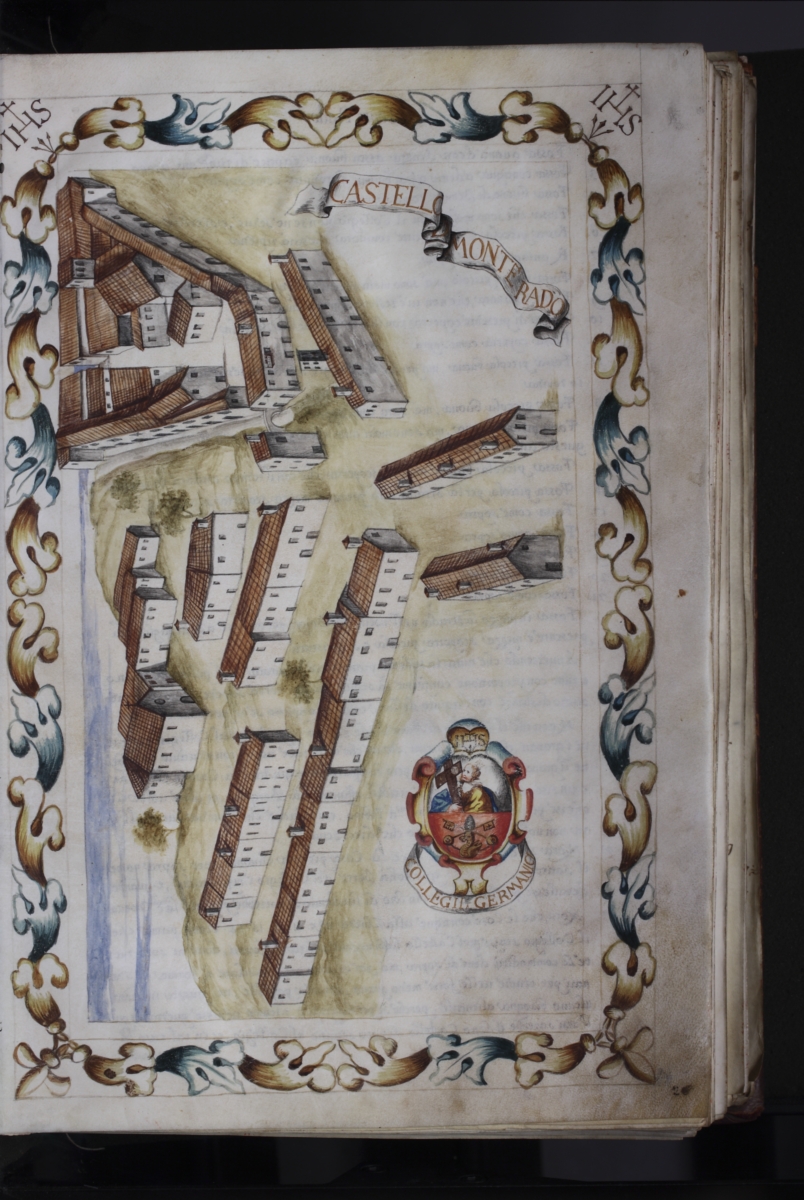 IHS
IHS
CASTELLO
MONTERADO
IHS
COLLEGII GERMANICI